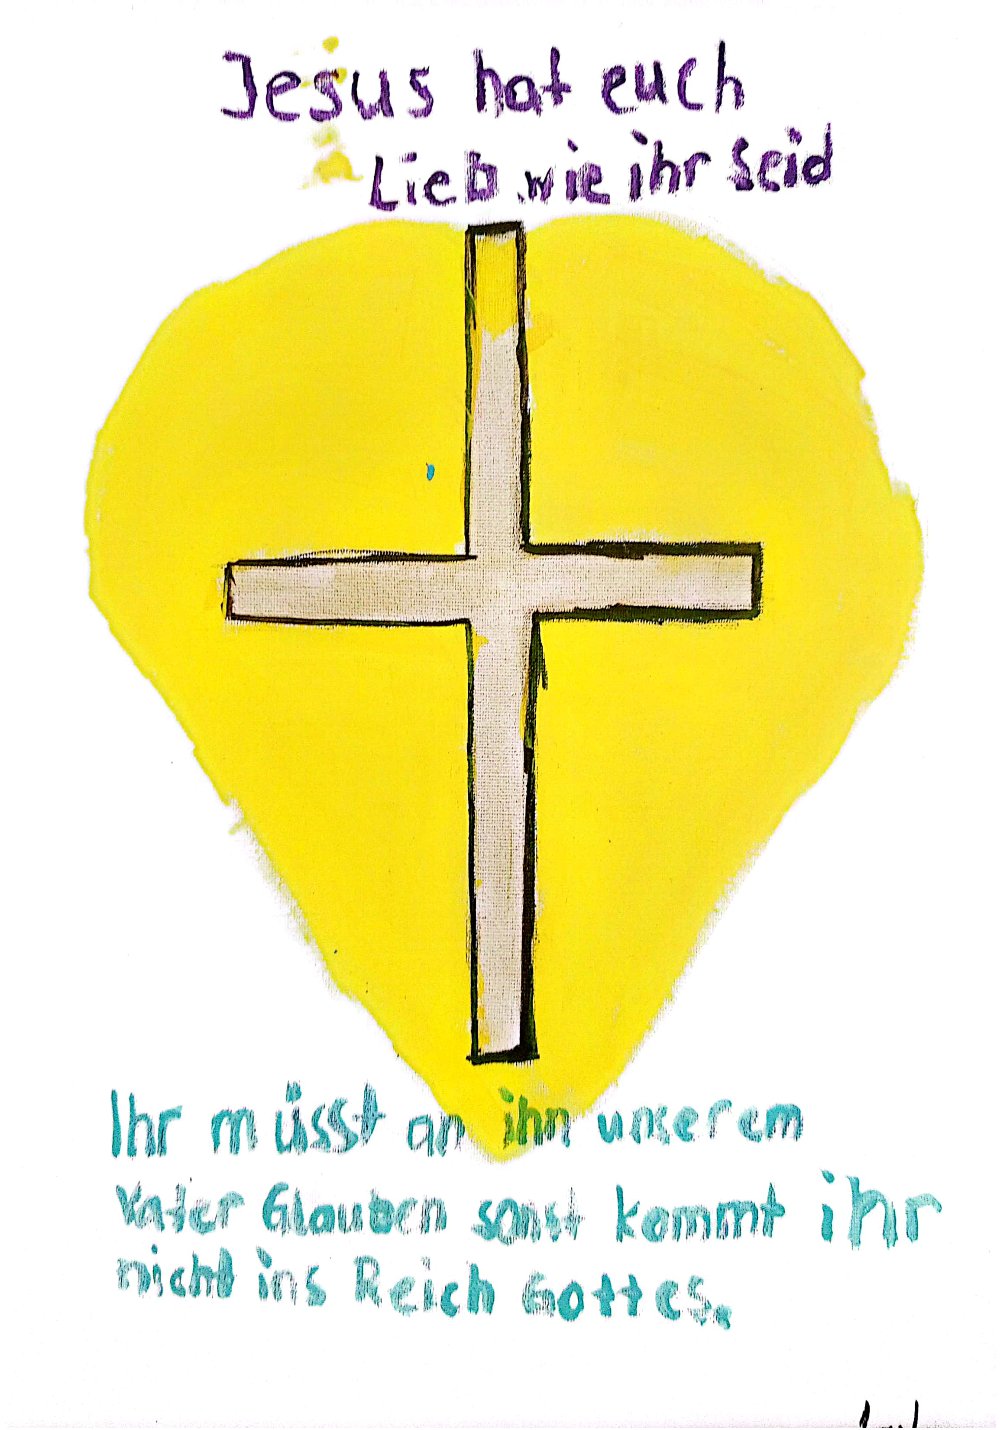 Jesus hat euch
Lieb wie ihr Seid
Ihr müsst an ihn unserem
Vater Glauben sonst kommt ihr
nicht ins Reich Gottes.